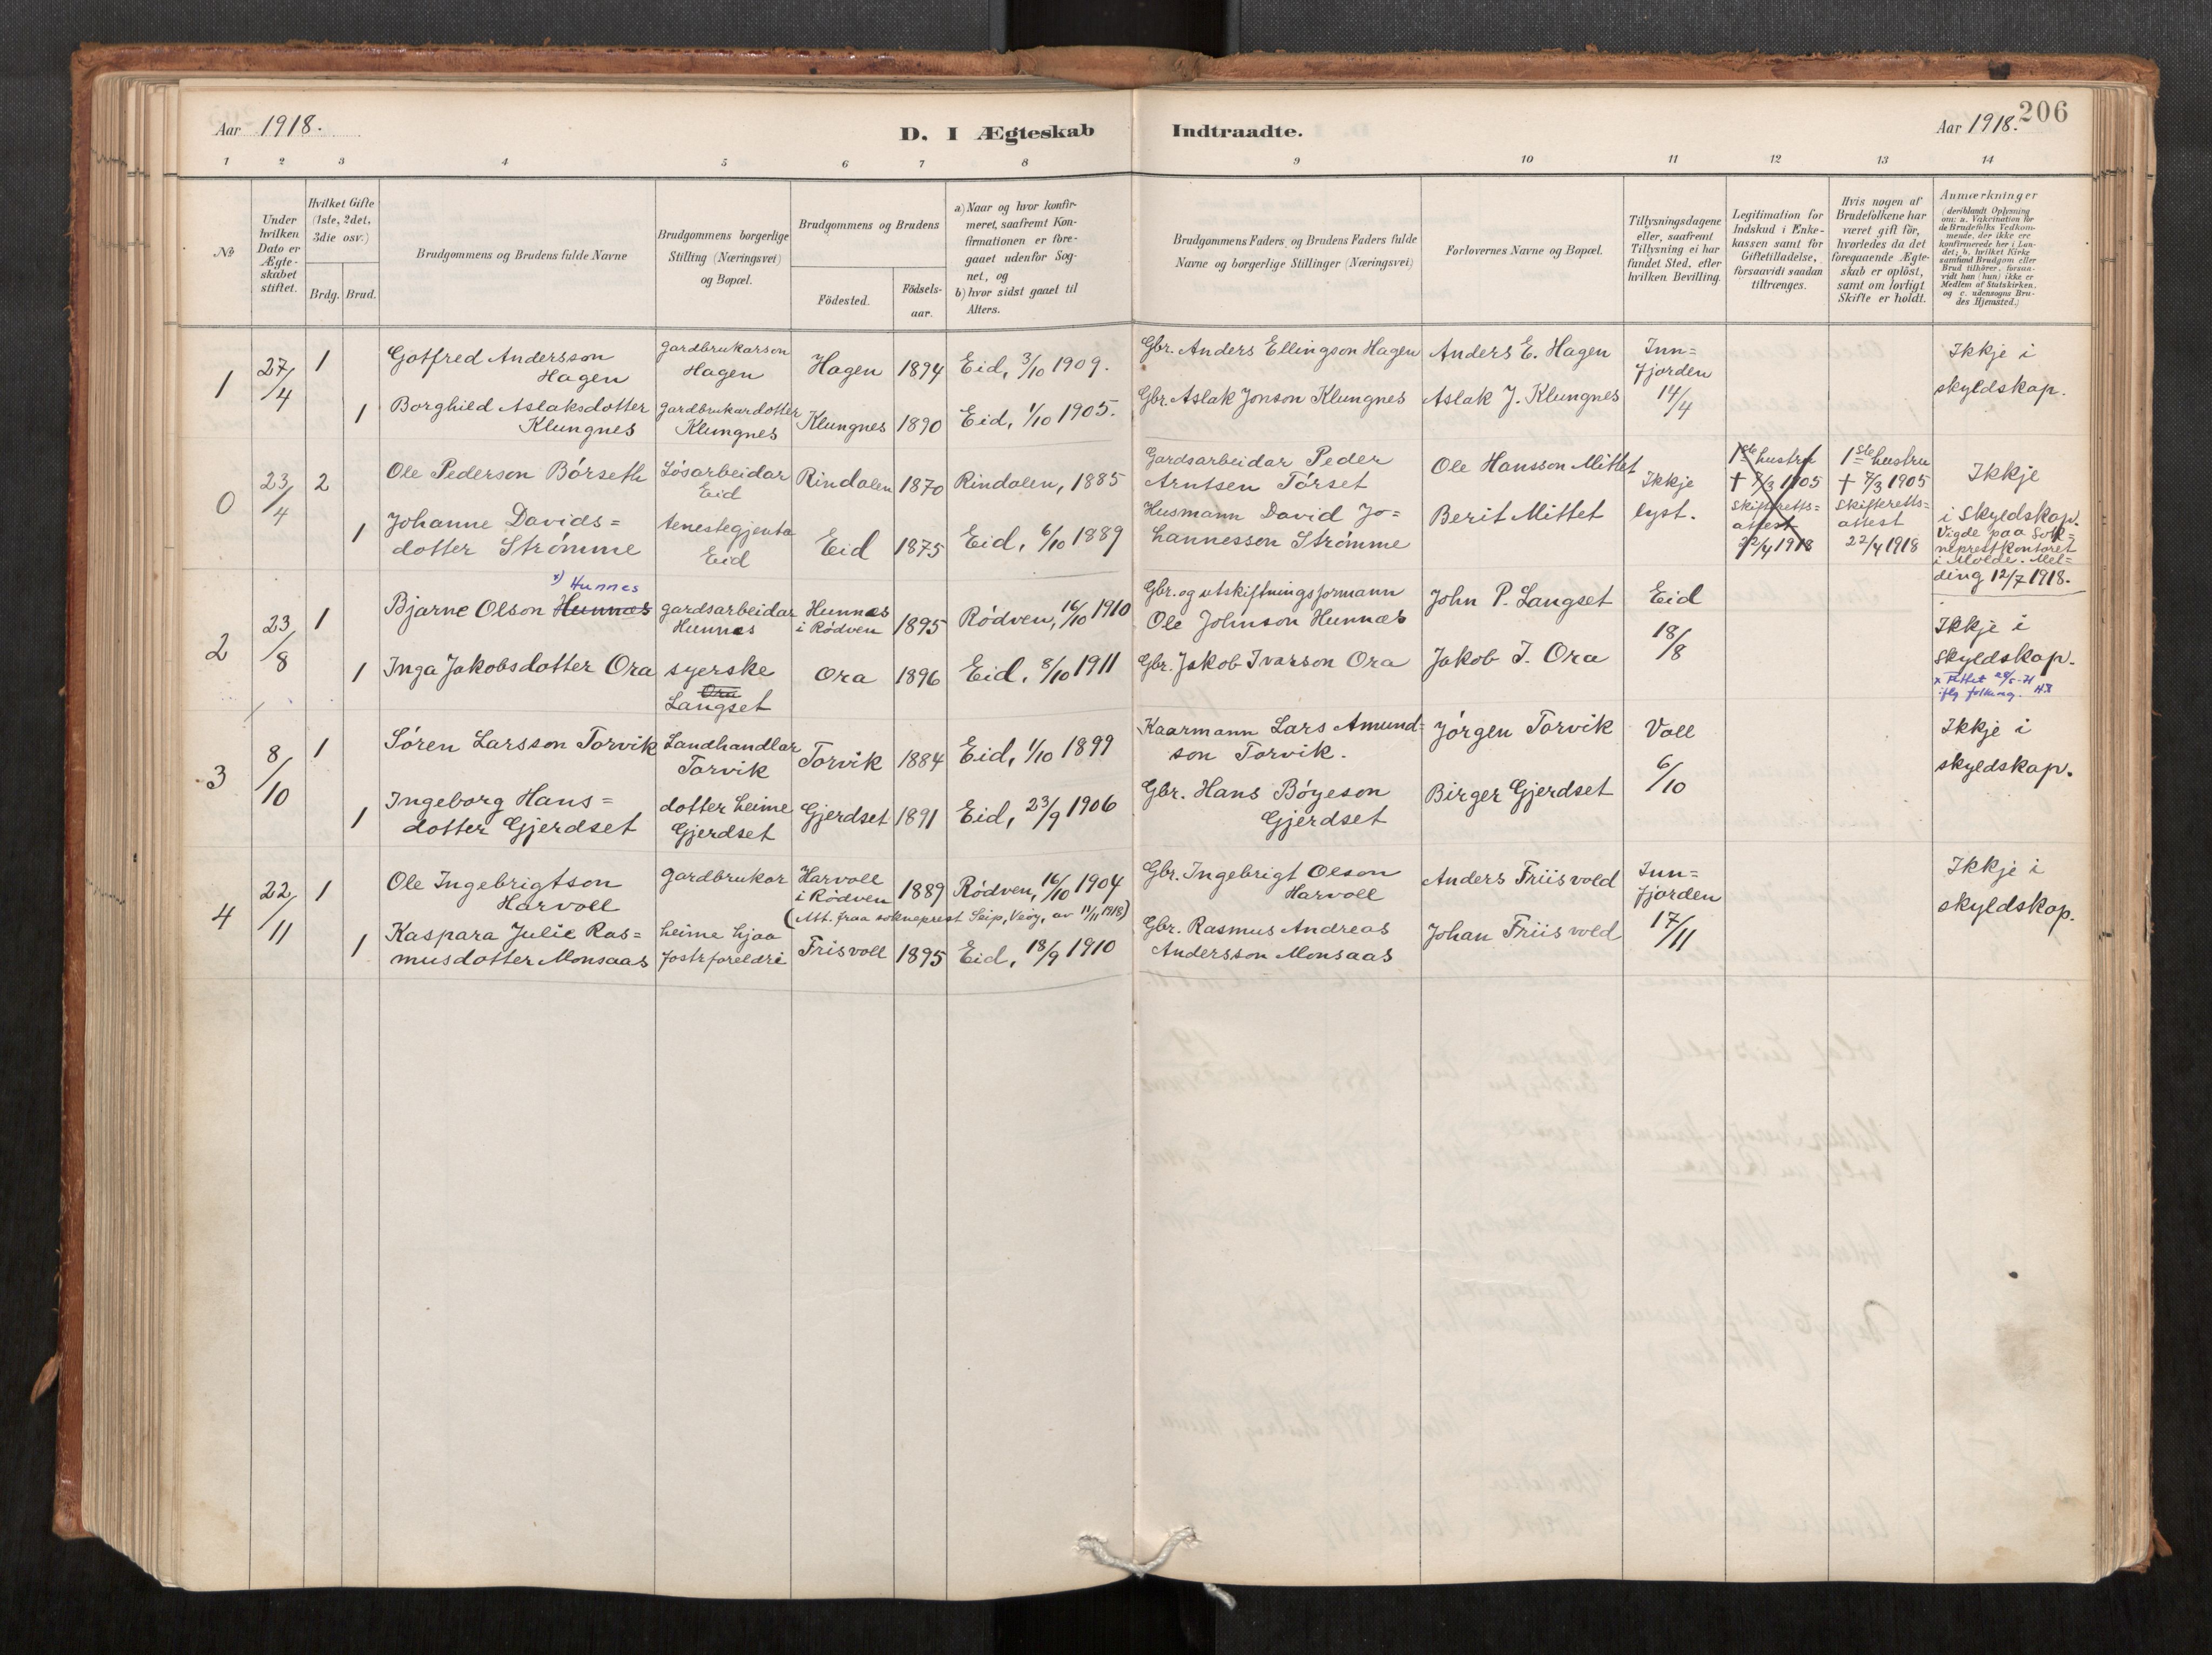 Aar 1918.
D. I Ægteskab Indtraadte.
Aar 1918. 206
1 2 3 4 5 6 7 8 9 10 11 12 13 14
№
Under hvilken Dato er Ægteskabet stiftet.
Hvilket Gifte (1ste, 2det, 3die osv.)
Brdg. Brud.
Brudgommens og Brudens fulde Navne
Brudgommens borgerlige Stilling (Næringsvei) og Bopæl.
Brudgommens og Brudens
Födested.
Födselsaar.
a) Naar og hvor konfirmeret, saafremt Konfirmationen er foregaaet udenfor Sognet, og
b) hvor sidst gaaet til Alters.
Brudgommens Faders og Brudens Faders fulde Navne og borgerlige Stillinger (Næringsvei)
Forlovernes Navne og Bopæl.
Tillysningsdagene eller, saafremt Tillysning ei har fundet Sted, efter hvilken Bevilling.
Legitimation for Indskud i Enkekassen samt for Giftetilladelse, forsaavidt saadan tiltrænges.
Hvis nogen af Brudefolkene har været gift för, hvorledes da det foregaaende Ægteskab er oplöst, samt om lovligt Skifte er holdt.
Anmærkninger (deriblandt Oplysning om: a. Vakcination for de Brudefolks Vedkommende, der ikke ere konfirmerede her i Landet; b. hvilket Kirkesamfund Brudgom eller Brud tilhörer, forsaavidt han (hun) ikke er Medlem af Statskirken, og c. udensogns Brudes Hjemsted.)
1 27/4 1 Gotfred Andersson Hagen gardbrukarson Hagen Hagen 1894 Eid, 3/10 1909. Gbr. Anders Ellingson Hagen Anders E. Hagen Innfjorden 14/4 Ikkje i skyldskap.
1 Borghild Aslaksdotter Klungnes gardbrukardotter Klungnes Klungnes 1890 Eid, 1/10 1905. Gbr. Aslak Jonson Klungnes Aslak J. Klungnes
0 23/4 2 Ole Pederson Börseth Lösarbeidar Eid Rindalen 1870 Rindalen, 1885 Gardsarbeidar Peder Arntsen Törset Ole Hansson Mittet Ikkje lyst.
1ste hustru † 7/3 1905 Skifteretts-attest 22/4 1918
1ste hustru † 7/3 1905 Skifteretts-attest 22/4 1918
Ikkje i skyldskap. Vigde paa Sokneprestkontoret i Molde. Melding 12/7 1918.
1 Johanne Davids=dotter Strömme tenestegjenta Eid Eid 1875 Eid, 6/10 1889 Husmann David Johannesson Strömme Berit Mittet
x) Hunnes
2 23/8 1 Bjarne Olson Hunnæs gardsarbeidar Hunnes Hunnæs i Rödven 1895 Rödven, 16/10 1910 Gbr. og utskiftningsformann Ole Johnson Hunnæs John P. Langset Eid 18/8 Ikkje i skyldskap.
1 Inga Jakobsdotter Ora syerske Ora Langset Ora 1896 Eid, 8/10 1911 Gbr. Jakob Ivarson Ora Jakob I. Ora
3 8/10 1 Sören Larsson Torvik Landhandlar Torvik Torvik 1884 Eid, 1/10 1899 Kaarmann Lars Amundson Torvik. Jörgen Torvik Voll 6/10 Ikkje i skyldskap.
1 Ingeborg Hans=dotter Gjerdset dotter heime Gjerdset Gjerdset 1891 Eid, 23/9 1906 Gbr. Hans Böyeson Gjerdset Birger Gjerdset
4 22/11 1 Ole Ingebrigtson Harvoll gardbrukar Harvoll i Rödven 1889 Rödven, 16/10 1904 Gbr. Ingebrigt Olson Harvoll Anders Friisvold Innfjorden 17/11 Ikkje i skyldskap.
(Att. fraa sokneprest Seip, Veöy, av 11/11 1918)
1 Kaspara Julie Rasmusdotter Monsaas heime hjaa fostrforeldri Frisvoll 1895 Eid, 18/9 1910 Gbr. Rasmus Andreas Andersson Monsaas Johan Friisvold